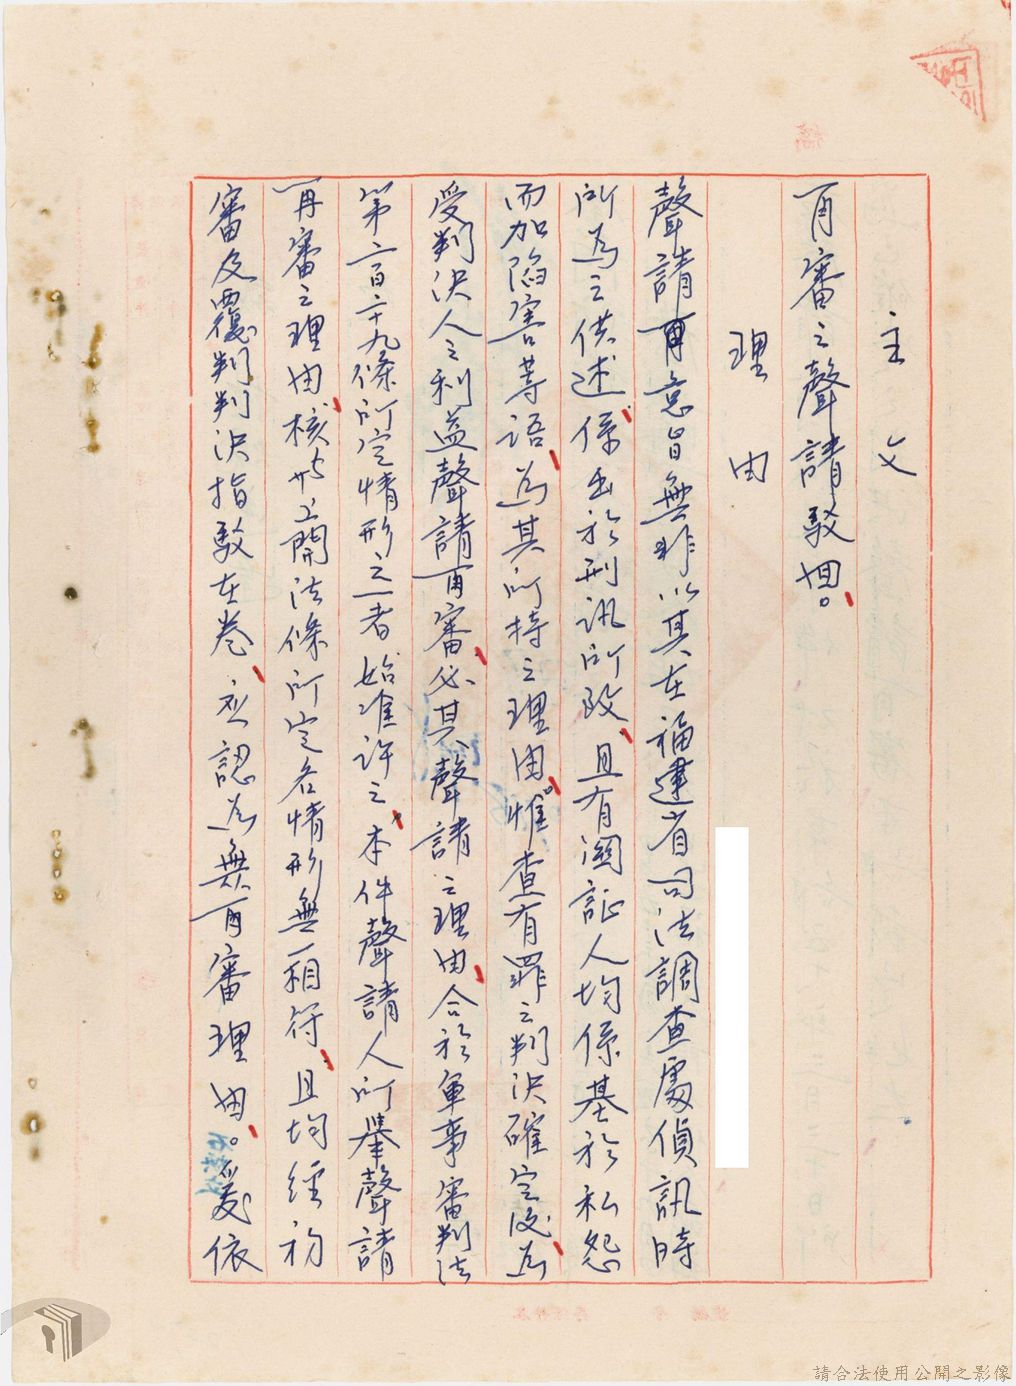 主文
再審之聲請駁回。
理由
聲請再意旨無非以其在福建省司法調查處偵訊時
所為之供述、係出於刑訊所致、且有關証人均係基於私怨
而加陷害等語、為其所持之理由。惟查有罪之判決確定後、為
受判決人之利益聲請再審、必其聲請之理由、合於軍事審判法
第二百二十九條所定情形之一者始准許之、本件聲請人所舉聲請
再審之理由、核與上開法條所定各情形無一相符、且均經初
審及覆判判決指駁在卷、應認為無再審理由。爰依
請合法使用公開之影像